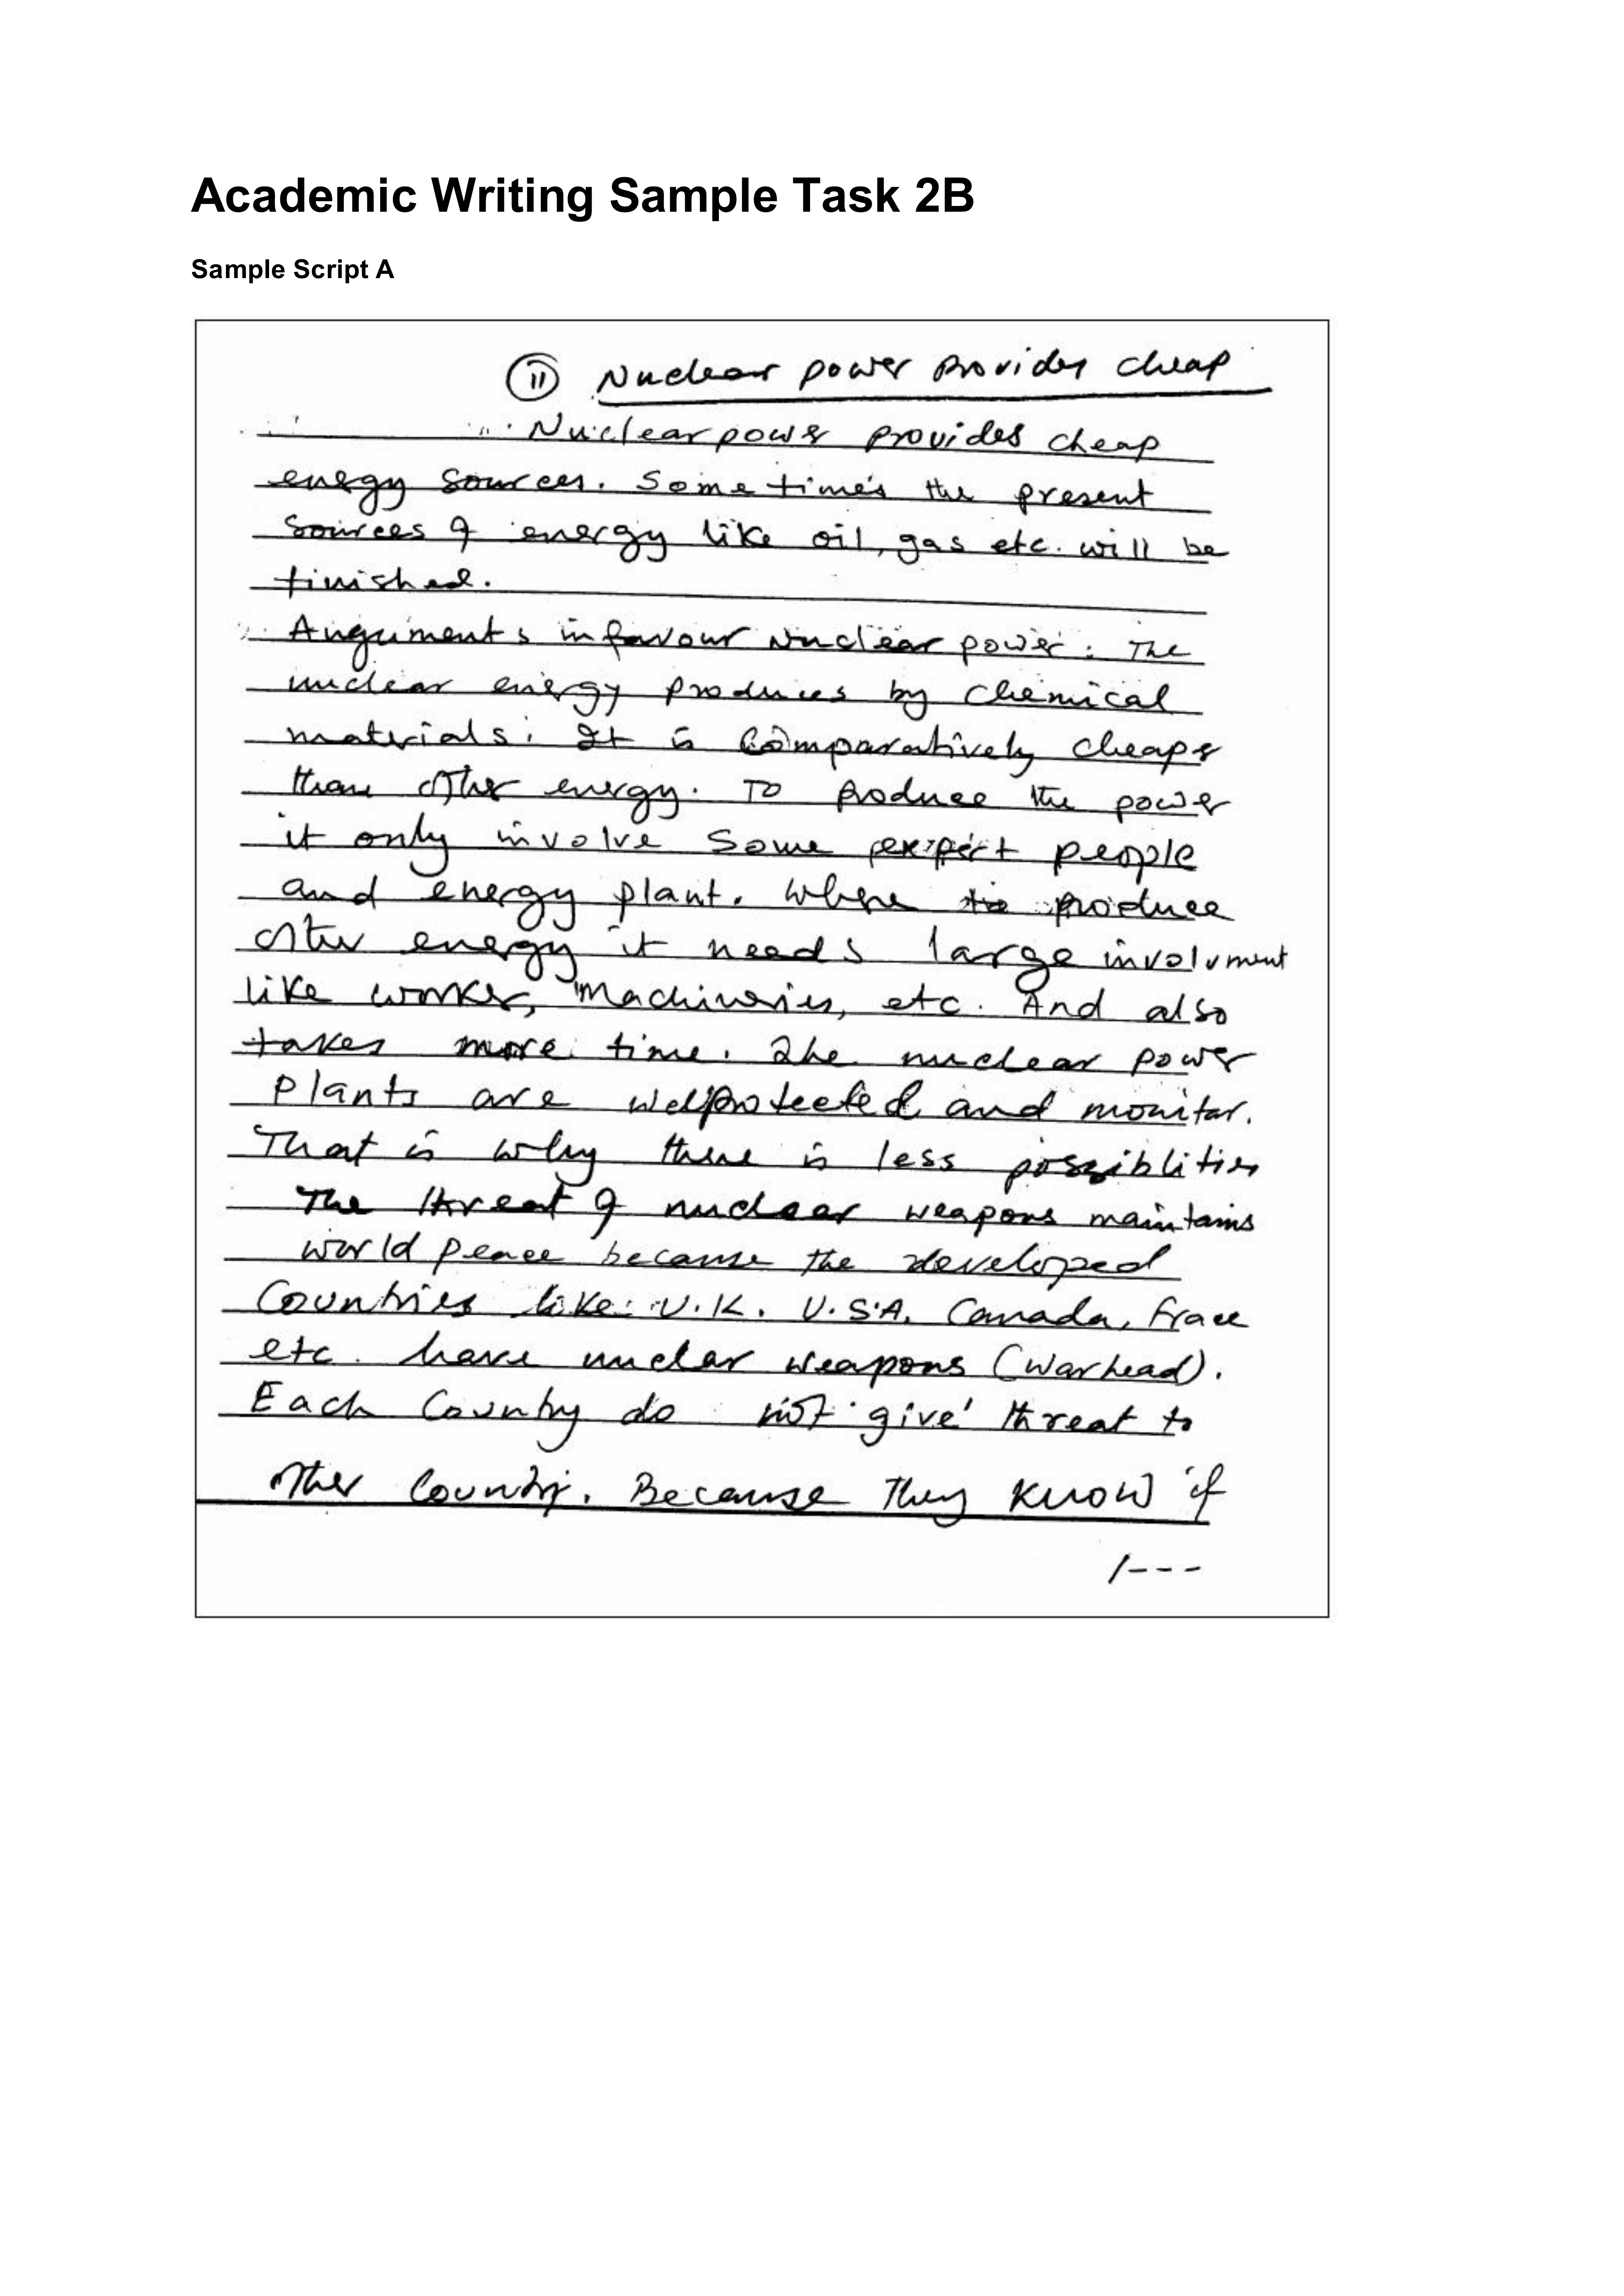 Academic Writing Sample Task 2B
Sample Script A
(11) Nuclear power provides cheap
Nuclear power provides cheap
energy sources. Sometimes the present
sources of energy like oil, gas etc. will be
finished.
Anguments in favour nuclear power: The
nuclear energy produces by chemical
materials. It is comparatively cheaper
than other energy. To produce the power
it only involve some expert people
and energy plant. Where to produce
other energy it needs large involvment
like worker, machineries, etc. And also
takes more time. The nuclear power
plants are wellprotected and monitor.
That is why there is less possiblities
The threat of nuclear weapons maintains
world peace because the developed
Countries like U.K. U.S.A. Canada, Frace
etc. have nuclar weapons (warhead).
Each Country do not give threat to
other Country. Because they know if
/---